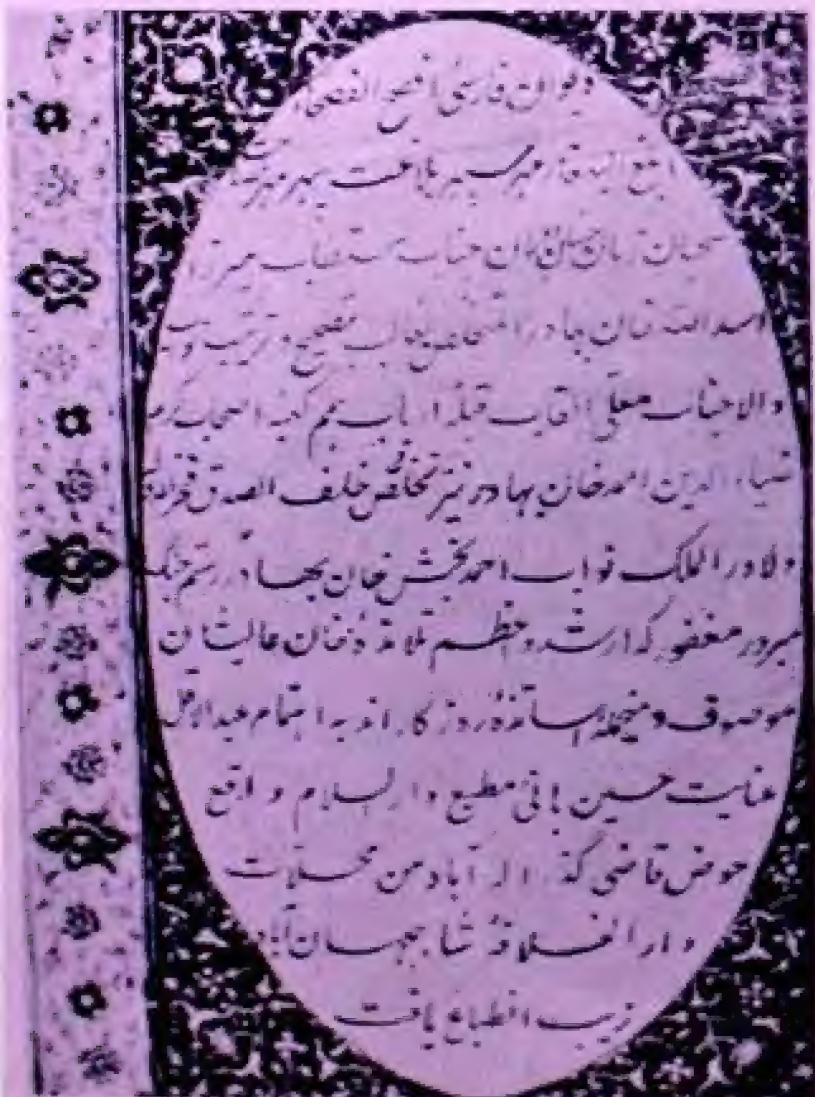 دیوان فارسی افصح الفصحا
ابلغ البلغا مهر سپهر بلاغت سپهر مهر
سحبان زمان جناب مستطاب میرزا
اسد الله خان بهادر المتخلص بغالب بتصحیح و ترتیب
والا جناب معلی القاب قبلهٔ ارباب همم کعبه اصحاب کرم
ضیاء الدین احمد خان بهادر نیر تخلص خلف الصدق فخر الدوله
دلاور الملک نواب احمد بخش خان بهادر رستم جنگ
مبرور مغفور که ارشد و اعظم تلامذهٔ خان عالیشان
موصوف و منجمله اساتذهٔ روزگار اند به اهتمام عبد الاقل
عنایت حسین بانی مطبع دار السلام واقع
حوض قاضی من محلات
دار الخلافهٔ شاهجهان آباد
زیب انطباع یافت